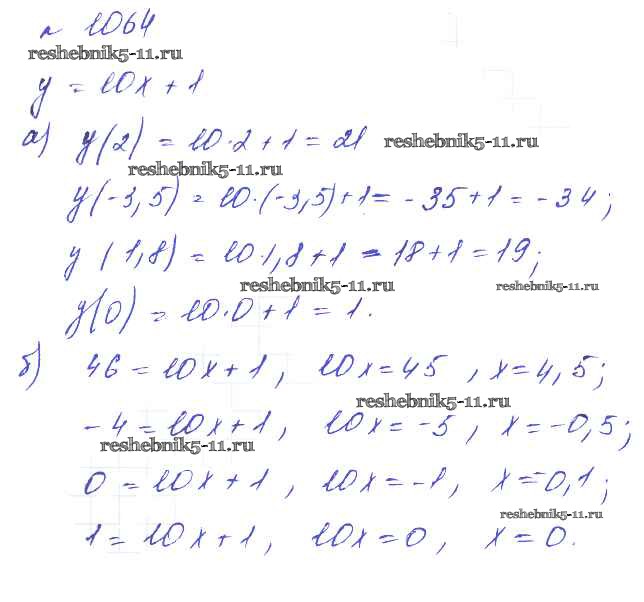 № 1064
reshebnik5-11.ru
y = 10x + 1
а) y(2) = 10·2 + 1 = 21 reshebnik5-11.ru
reshebnik5-11.ru
y(-3,5) = 10·(-3,5)+1 = -35+1 = -34;
y(1,8) = 10·1,8+1 = 18+1 = 19;
reshebnik5-11.ru reshebnik5-11.ru
y(0) = 10·0+1 = 1.
б) 46 = 10x+1, 10x=45, x=4,5;
reshebnik5-11.ru
-4 = 10x+1, 10x = -5, x = -0,5;
reshebnik5-11.ru
0 = 10x+1, 10x = -1, x = -0,1;
reshebnik5-11.ru
1 = 10x+1, 10x=0, x=0.